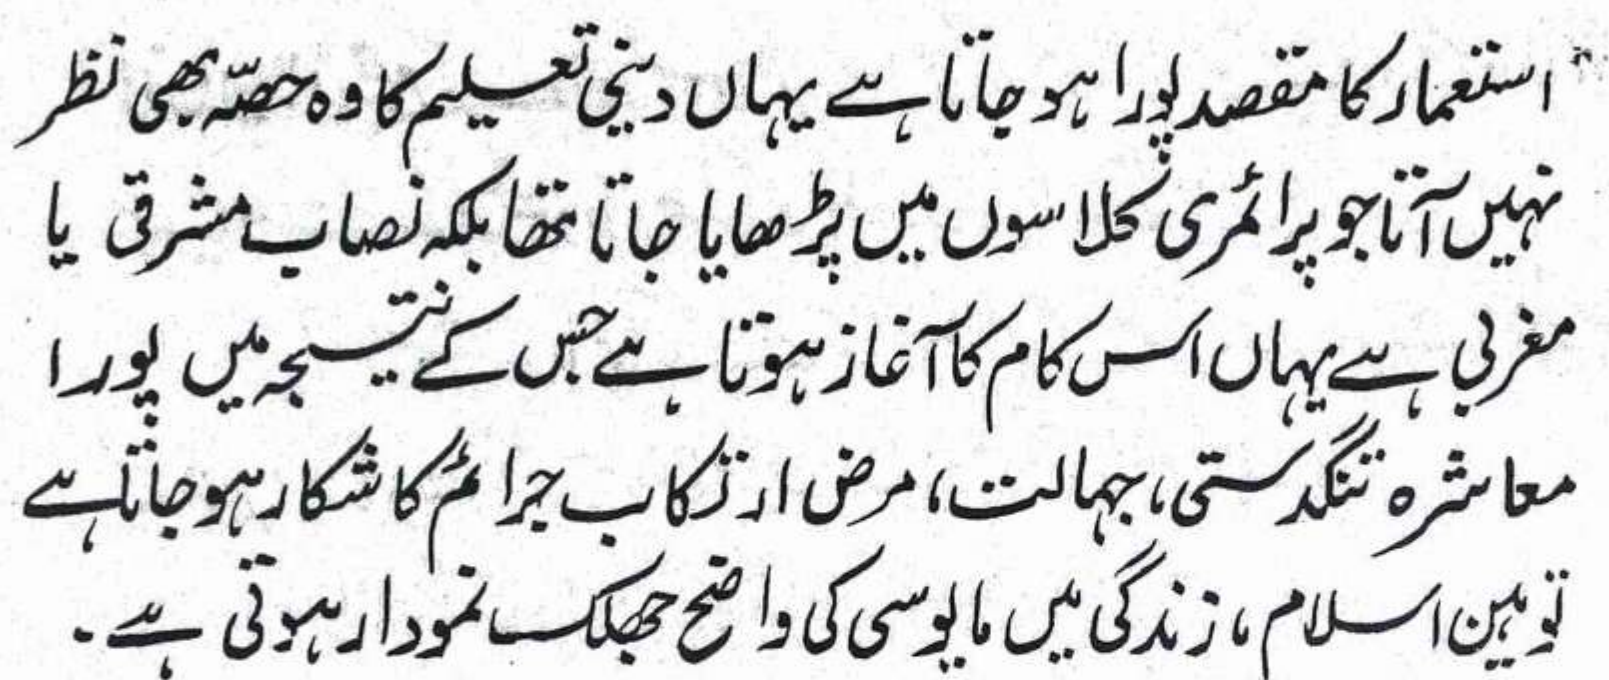 استعمار کا مقصد پورا ہو جاتا ہے یہاں دینی تعلیم کا وہ حصّہ بھی نظر
نہیں آتا جو پرائمری کلاسوں میں پڑھایا جاتا تھا بلکہ نصاب مشرقی یا
مغربی ہے یہاں اس کام کا آغاز ہوتا ہے جس کے نتیجہ میں پورا
معاشرہ تنگدستی، جہالت، مرض ارتکاب جرائم کا شکار ہو جاتا ہے
توہین اسلام، زندگی میں مایوسی کی واضح جھلک نمودار ہوتی ہے۔